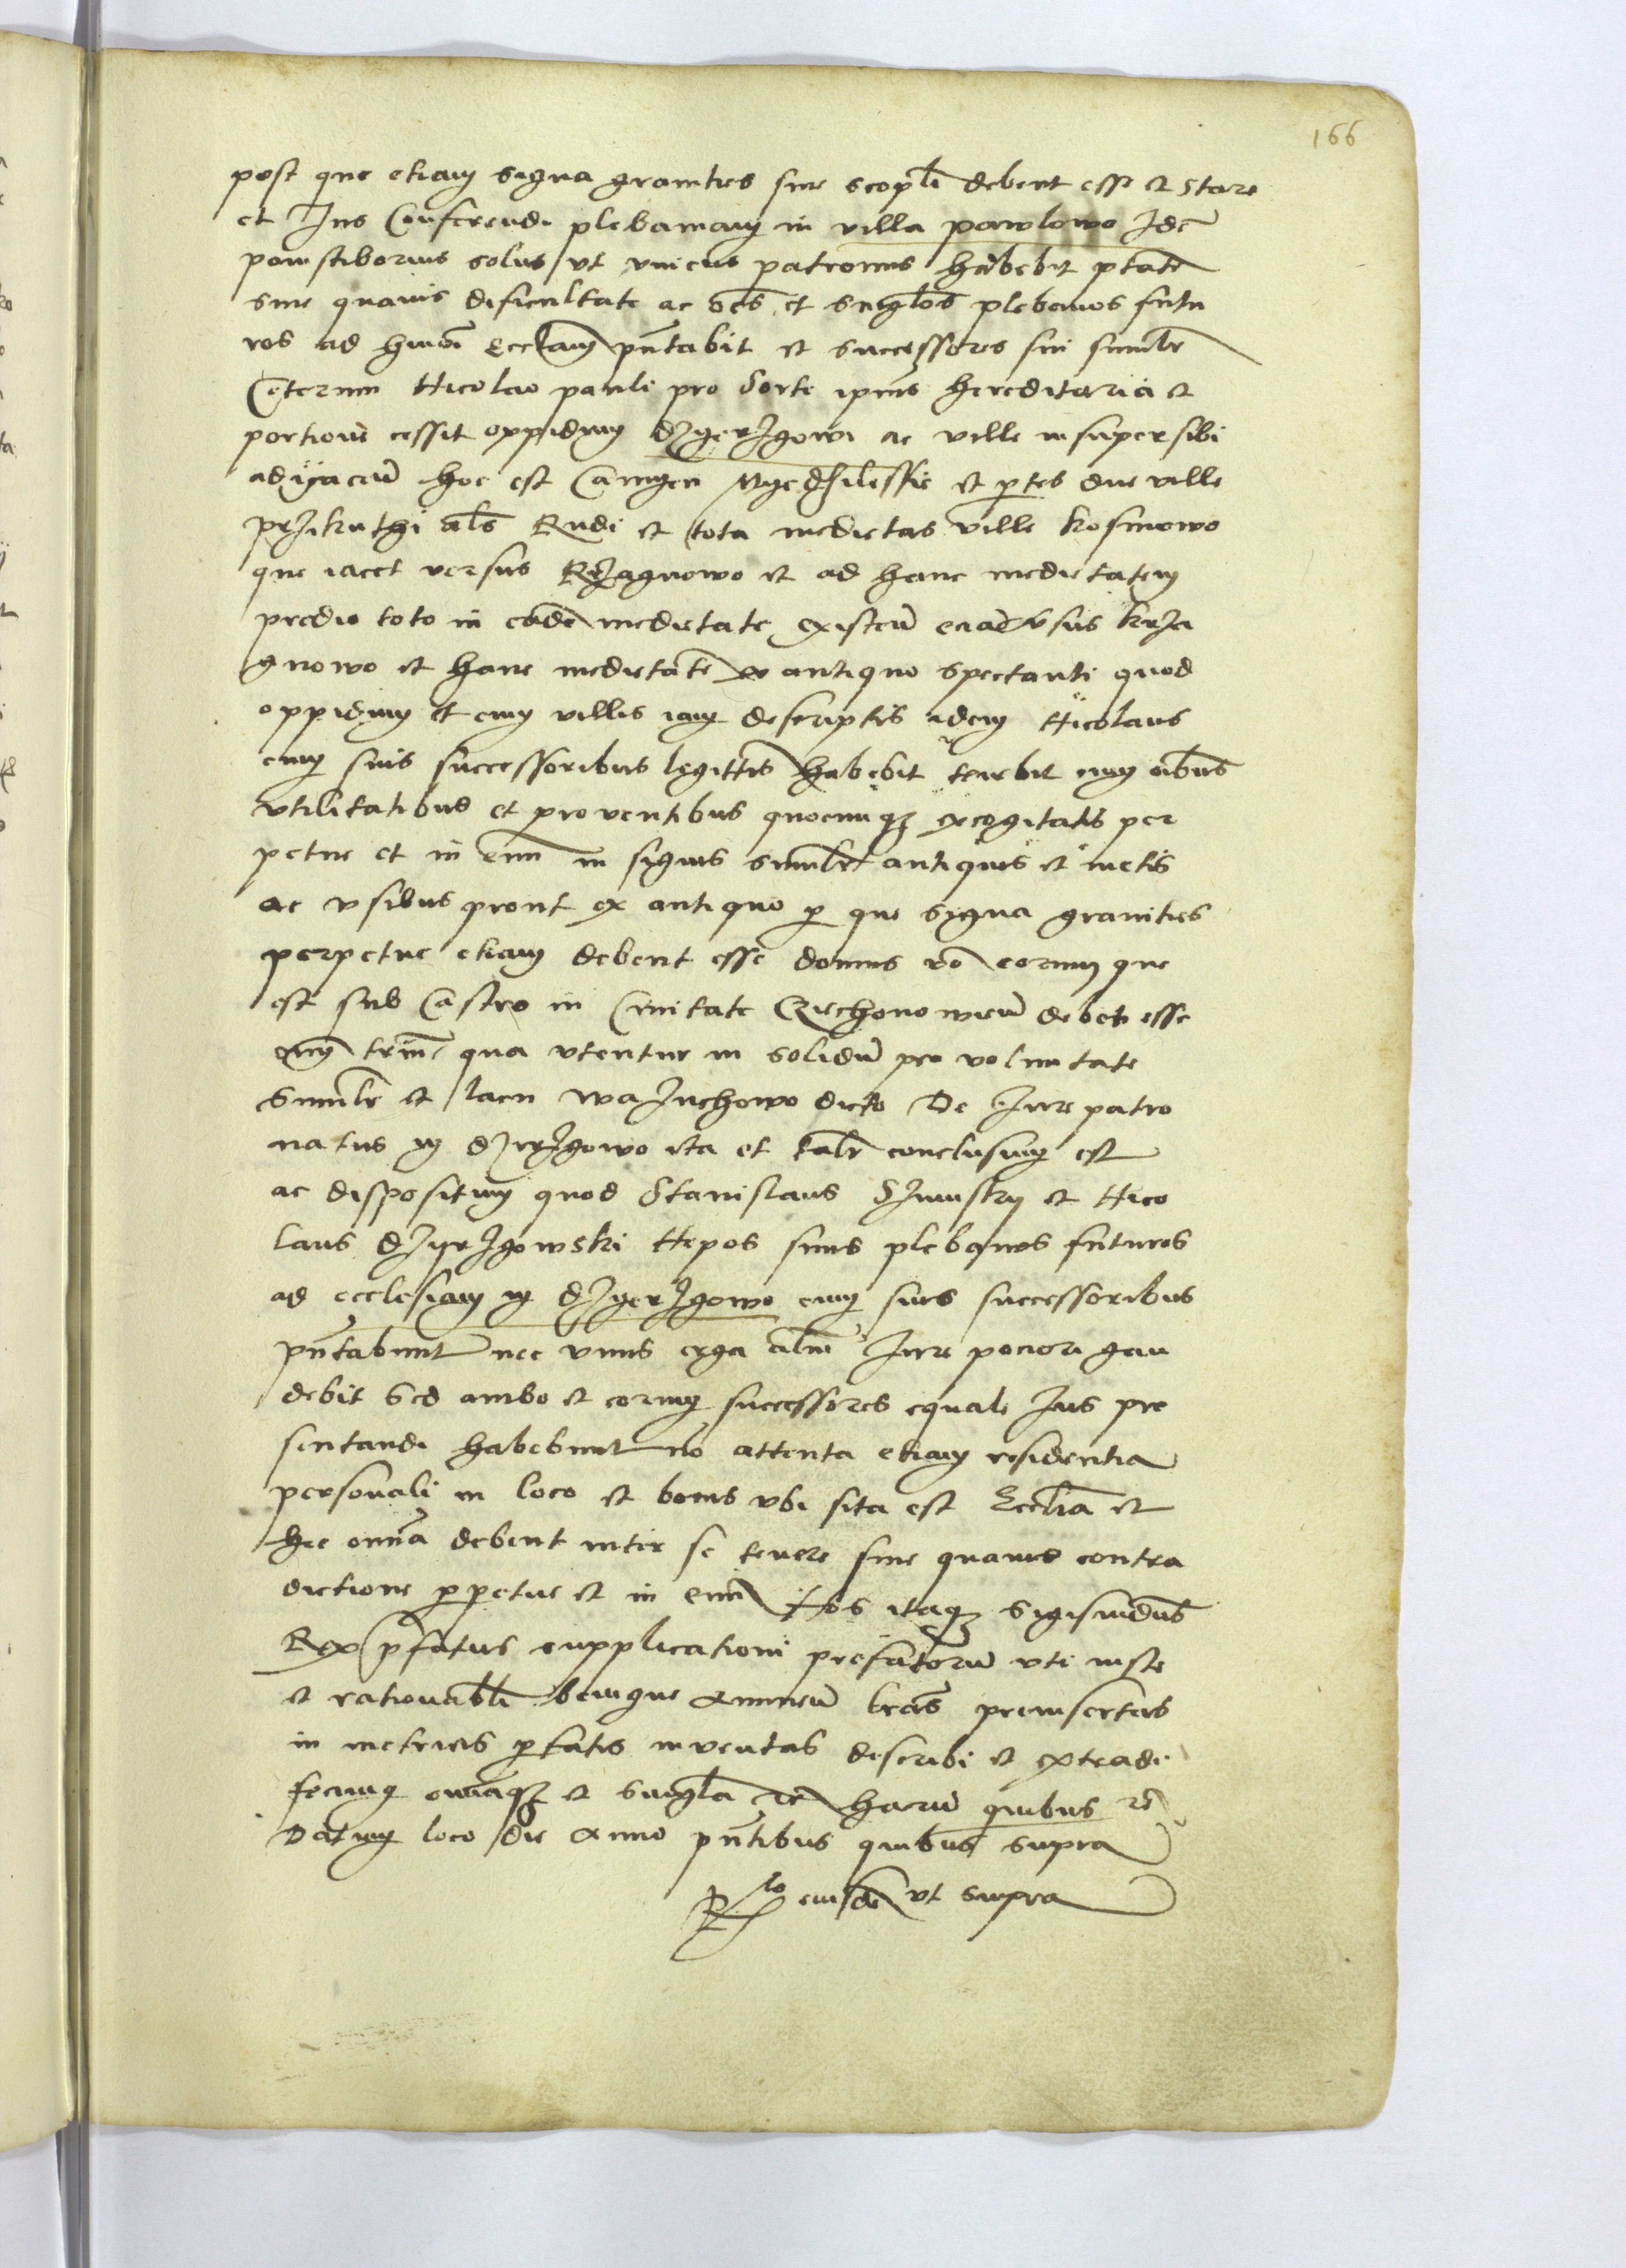 166
post que etiam signa granities siue scopuli debent esse et stare
et Ius Conferendi plebaniam in villa pawlowo Idē
pomstiborius solus vt vnicus patronus habebit ptatē
sine quauis dificultate ac oēs et singlōs plebanos futu
ros ad huiōi Eccłiam pñtabit et successores sui similr
Ceterum Nicolao pauli pro Sorte ipius hereditaria et
portione cessit oppidum dzyerzgowi ac ville insuper sibi
adyaceñ hoc est Camyen et ptes due ville
als Rudi et tota medietas ville kosmowo
que iacet versus Krzagnowo et ad hanc medietatem
predio toto in eadē medietate existeñ eciā vsus krza
gnowo et hanc medietatē ex antiquo spectanti quod
oppidum et cum villis iam descriptis idem Nicolaus
cum suis successoribus legittis habebit tenebit cum oibus
vtilitatibus et prouentibus quocunqz excogitatis per
petue et in euum in signis similr antiquis et metis
ac vsibus prout ex antiquo p que signa granities
perpetue etiam debent esse domus vo eorum que
est sub Castro in Ciuitate Czechonowieñ debet esse
qua vtentur in solidū pro voluntate
similr et lacu wazuchowo dicto De Iure patro
natus in dzyerzgowo ita et talr conclusum est
ac dispositum quod Stanislaus et Nico
laus dzyerzgowski Nepos suus plebanos futuros
ad ecclesiam in dzyerzgowo cum suis successoribus
pñtabunt nec vnus erga aliū Iure pociori gau
debit Sed ambo et eorum successores equale Ius pre
sentandi habebunt nō attenta etiam residentia
personali in loco et bonis vbi sita est Ecclīa et
hec omīa debent inter se tenere sine quauis contra
dictione ppetue et in euū Nos itaqz Sigismūdus
Rex pfatus supplicationi prefatorū vti iuste
et rationabli benigne annueñ lras preinsertas
in metricis ptatis inuentas describi et extradi
fecimus omiaqz et singla tē harū quibus rē
Datum loco die Anno pñtibus quibus supra
Rlo eiusdē vt supra